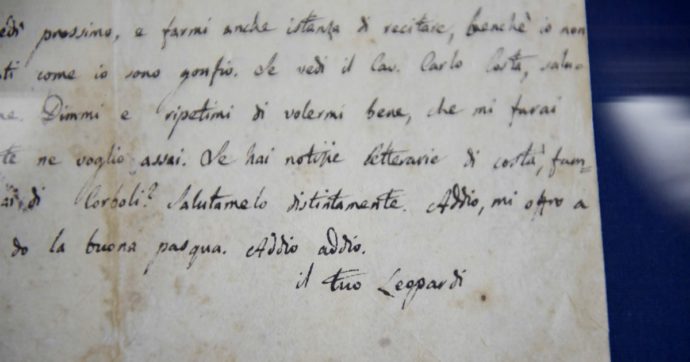 edì prossimo, e farmi anche istanza di recitare, benchè io non
ti come io sono gonfio. Se vedi il Cav. Carlo Costa, salu-
ne. Dimmi e ripetimi di volermi bene, che mi farai
te ne voglio assai. Se hai notizie letterarie di costà, fam-
ai di Corboli? Salutamelo distintamente. Addio, mi offro a
do la buona pasqua. Addio addio.
il tuo Leopardi